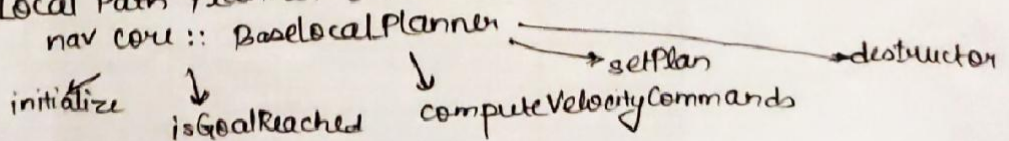 Local Path
nav core :: BaseLocalPlanner
setPlan
destructor
initialize
isGoalReached
computeVelocityCommands